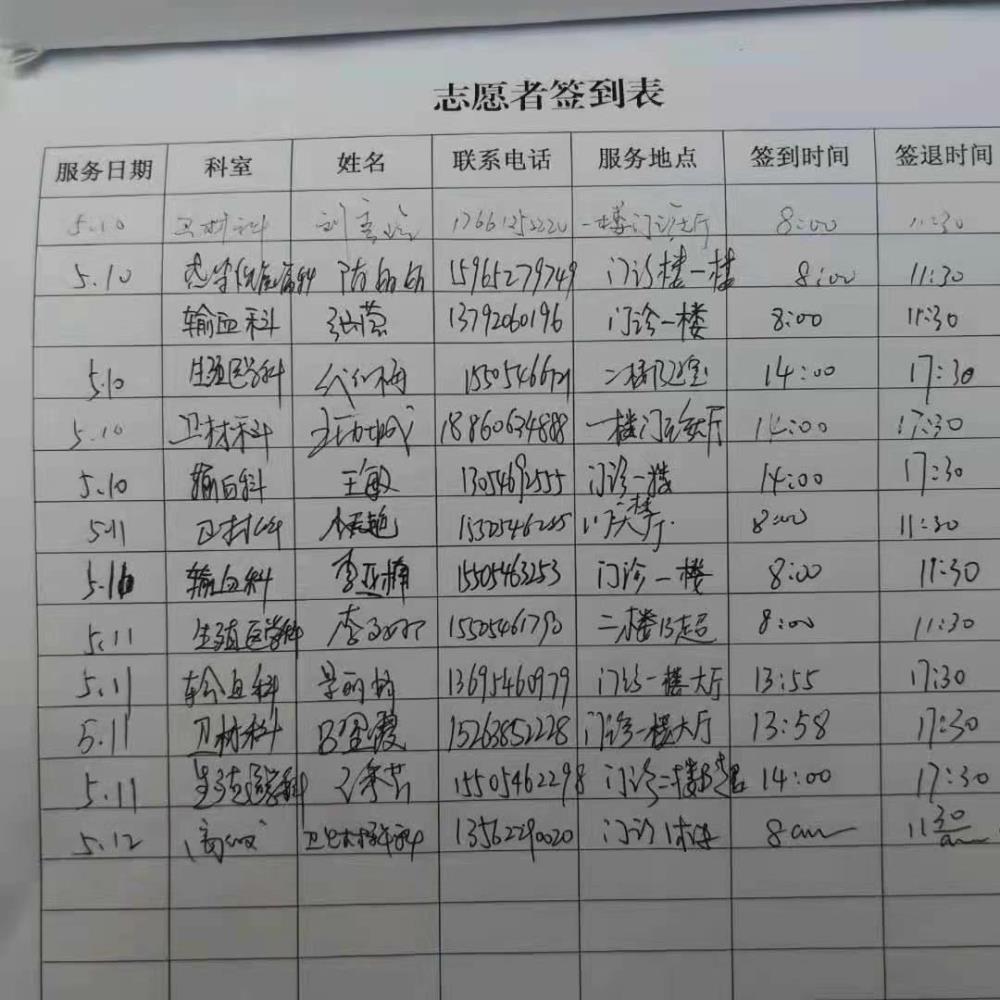 志愿者签到表
服务日期 科室 姓名 联系电话 服务地点 签到时间 签退时间
5.10 卫材科 17661252220 一楼门诊大厅 8:00 11:30
5.10 15965279749 门诊楼一楼 8:00 11:30
输血科 张蕾 13792060196 门诊一楼 8:00 11:30
5.10 生殖医学科 14:00 17:30
5.10 卫材科 18860634888 一楼门诊大厅 14:00 17:30
5.10 输血科 王敏 13054692555 门诊一楼 14:00 17:30
5.11 卫材科 8:00 11:30
输血科 李亚楠 15505463253 门诊一楼 8:00 11:30
5.11 生殖医学科 15505461790 8:00 11:30
5.11 输血科 13695460979 门诊一楼大厅 13:55 17:30
5.11 卫材科 吕盈霞 15263852228 门诊一楼大厅 13:58 17:30
5.11 生殖医学科 15505462298 14:00 17:30
5.12 13562290020 门诊 8am 11:30 am